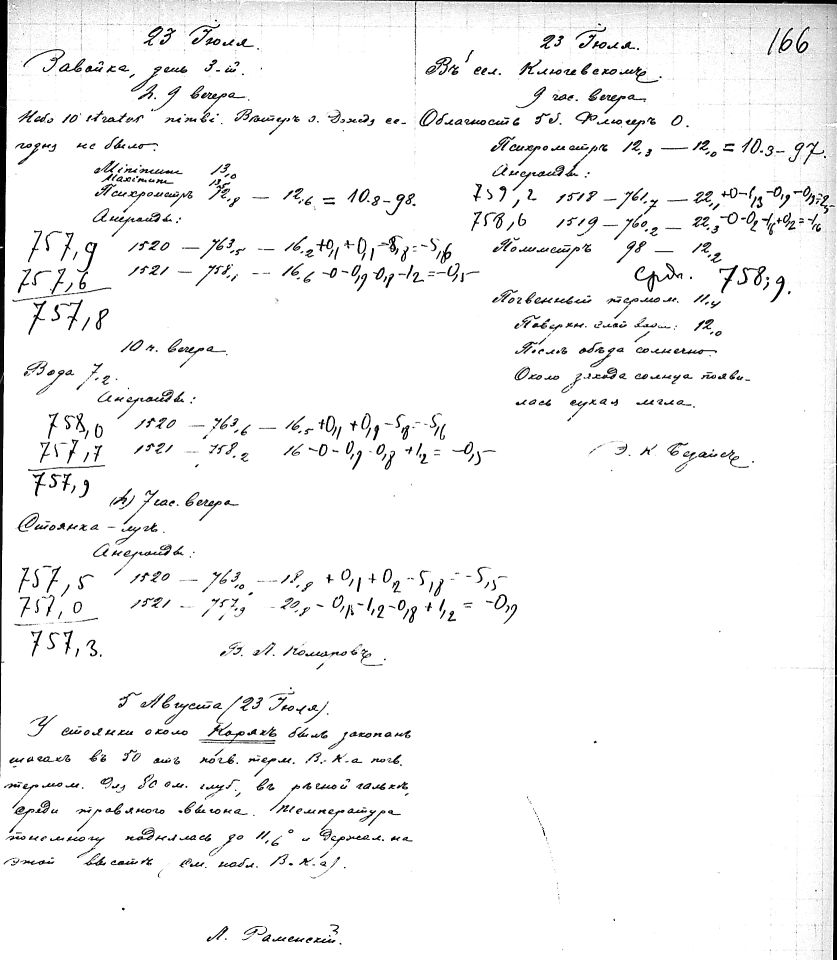 166
23 Іюля.
Завойка, день 3-й.
h. 9 вечера.
Небо 10 stratus nimbi. Вѣтеръ 0. Дождя се-
годня не было.
Minimum 13,0
Maximum
Психрометръ 12,8 — 12,6 = 10.8 — 98.
Анероиды:
757,9 1520 — 763,5 — 16,2 +0,1 +0,1 -5,8 = -5,6
757,6 1521 — 758,1 — 16,6 -0 -0,9 -0,8 -1,2 = -0,5
757,8
10 h. вечера.
Вода 7,2.
Анероиды:
758,0 1520 — 763,6 — 16,5 +0,1 +0,1 -5,8 = -5,6
757,7 1521 — 758,2 16 -0 -0,9 -0,8 +1,2 = -0,5
757,9
(h) 7 час. вечера
Стоянка – лугъ.
Анероиды:
757,5 1520 — 763,0 — 18,8 +0,1 +0,2 -5,8 = -5,5
757,0 1521 — 757,9 20,8 -0,1 -1,2 -0,8 +1,2 = -0,9
757,3.
В. Л. Комаровъ.
5 Августа (23 Іюля).
У стоянки около Корякъ былъ закопанъ
шагахъ въ 50 отъ почв. терм. В. К-а почв.
термом. для 80 см. глуб., въ рѣчной галькѣ,
среди травяного выгона. Температура
понемногу поднялась до 11,6° и держал. на
этой высотѣ см. набл. В. К-а).
Л. Раменскій.
23 Іюля.
Въ сел. Ключевскомъ.
9 час. вечера
Облачность 5 б. Флюгеръ 0.
Психрометръ 12,3 — 12,0 = 10.3 — 97.
Анероиды:
759,2 1518 — 761,7 — 22,1
758,6 1519 — 760,2 — 22,3
Полиметръ 98 — 12,2
Средн. 758,9.
Почвенный термом. 11,4
Поверхн. слой 12,0
Послѣ обѣда солнечно.
Около захода солнца появи-
лась сухая мгла.
Э. К. Безаисъ.